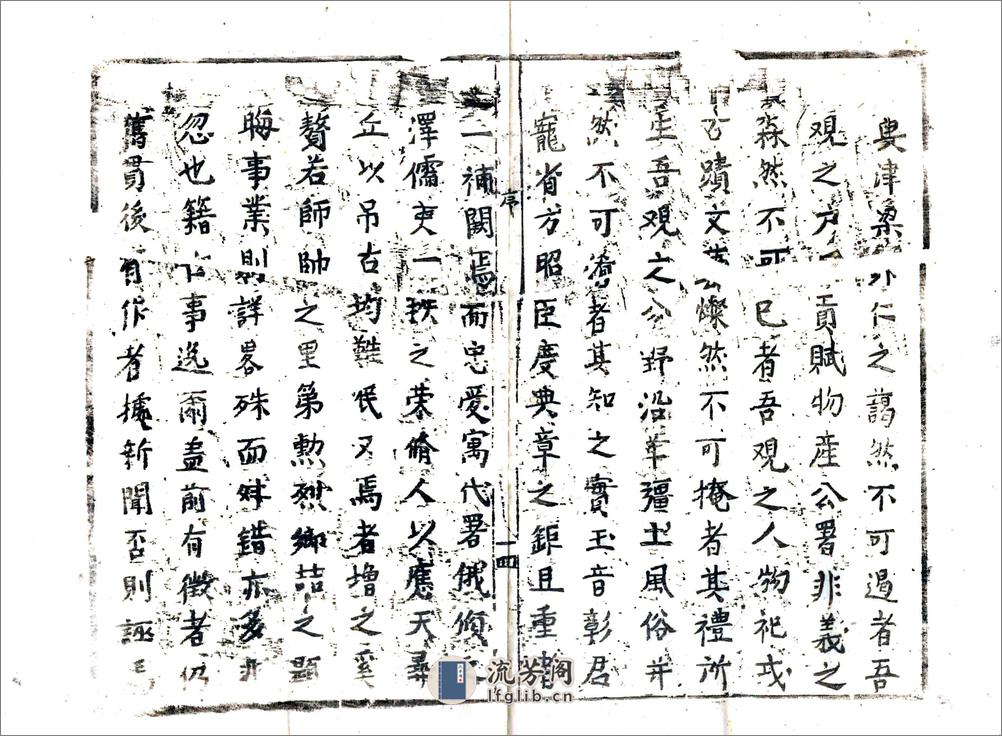 與津梁外仁之藹然不可遏者吾
觀之戶貢賦物產公署非義之
森然不可已者吾觀之人物祀或
古蹟文燦然不可掩者其禮所
生吾觀之分野沿革疆土風俗井
然不可淆者其知之實玉音彰君
寵省方昭臣慶典章之鉅且重
二補闕焉而忠愛寓代署俄傾
澤儒吏一秩之榮脩人以應天
丘以吊古均難俔又焉者增之奚
贅若師帥之里第勳烈鄉喆之題
晦事業則詳畧殊而舛錯亦多
忽也籍事逸爾盖前有徵者仍
舊貫後有作者據新聞否則誣
序
十四
流芳阁
lfglib.cn